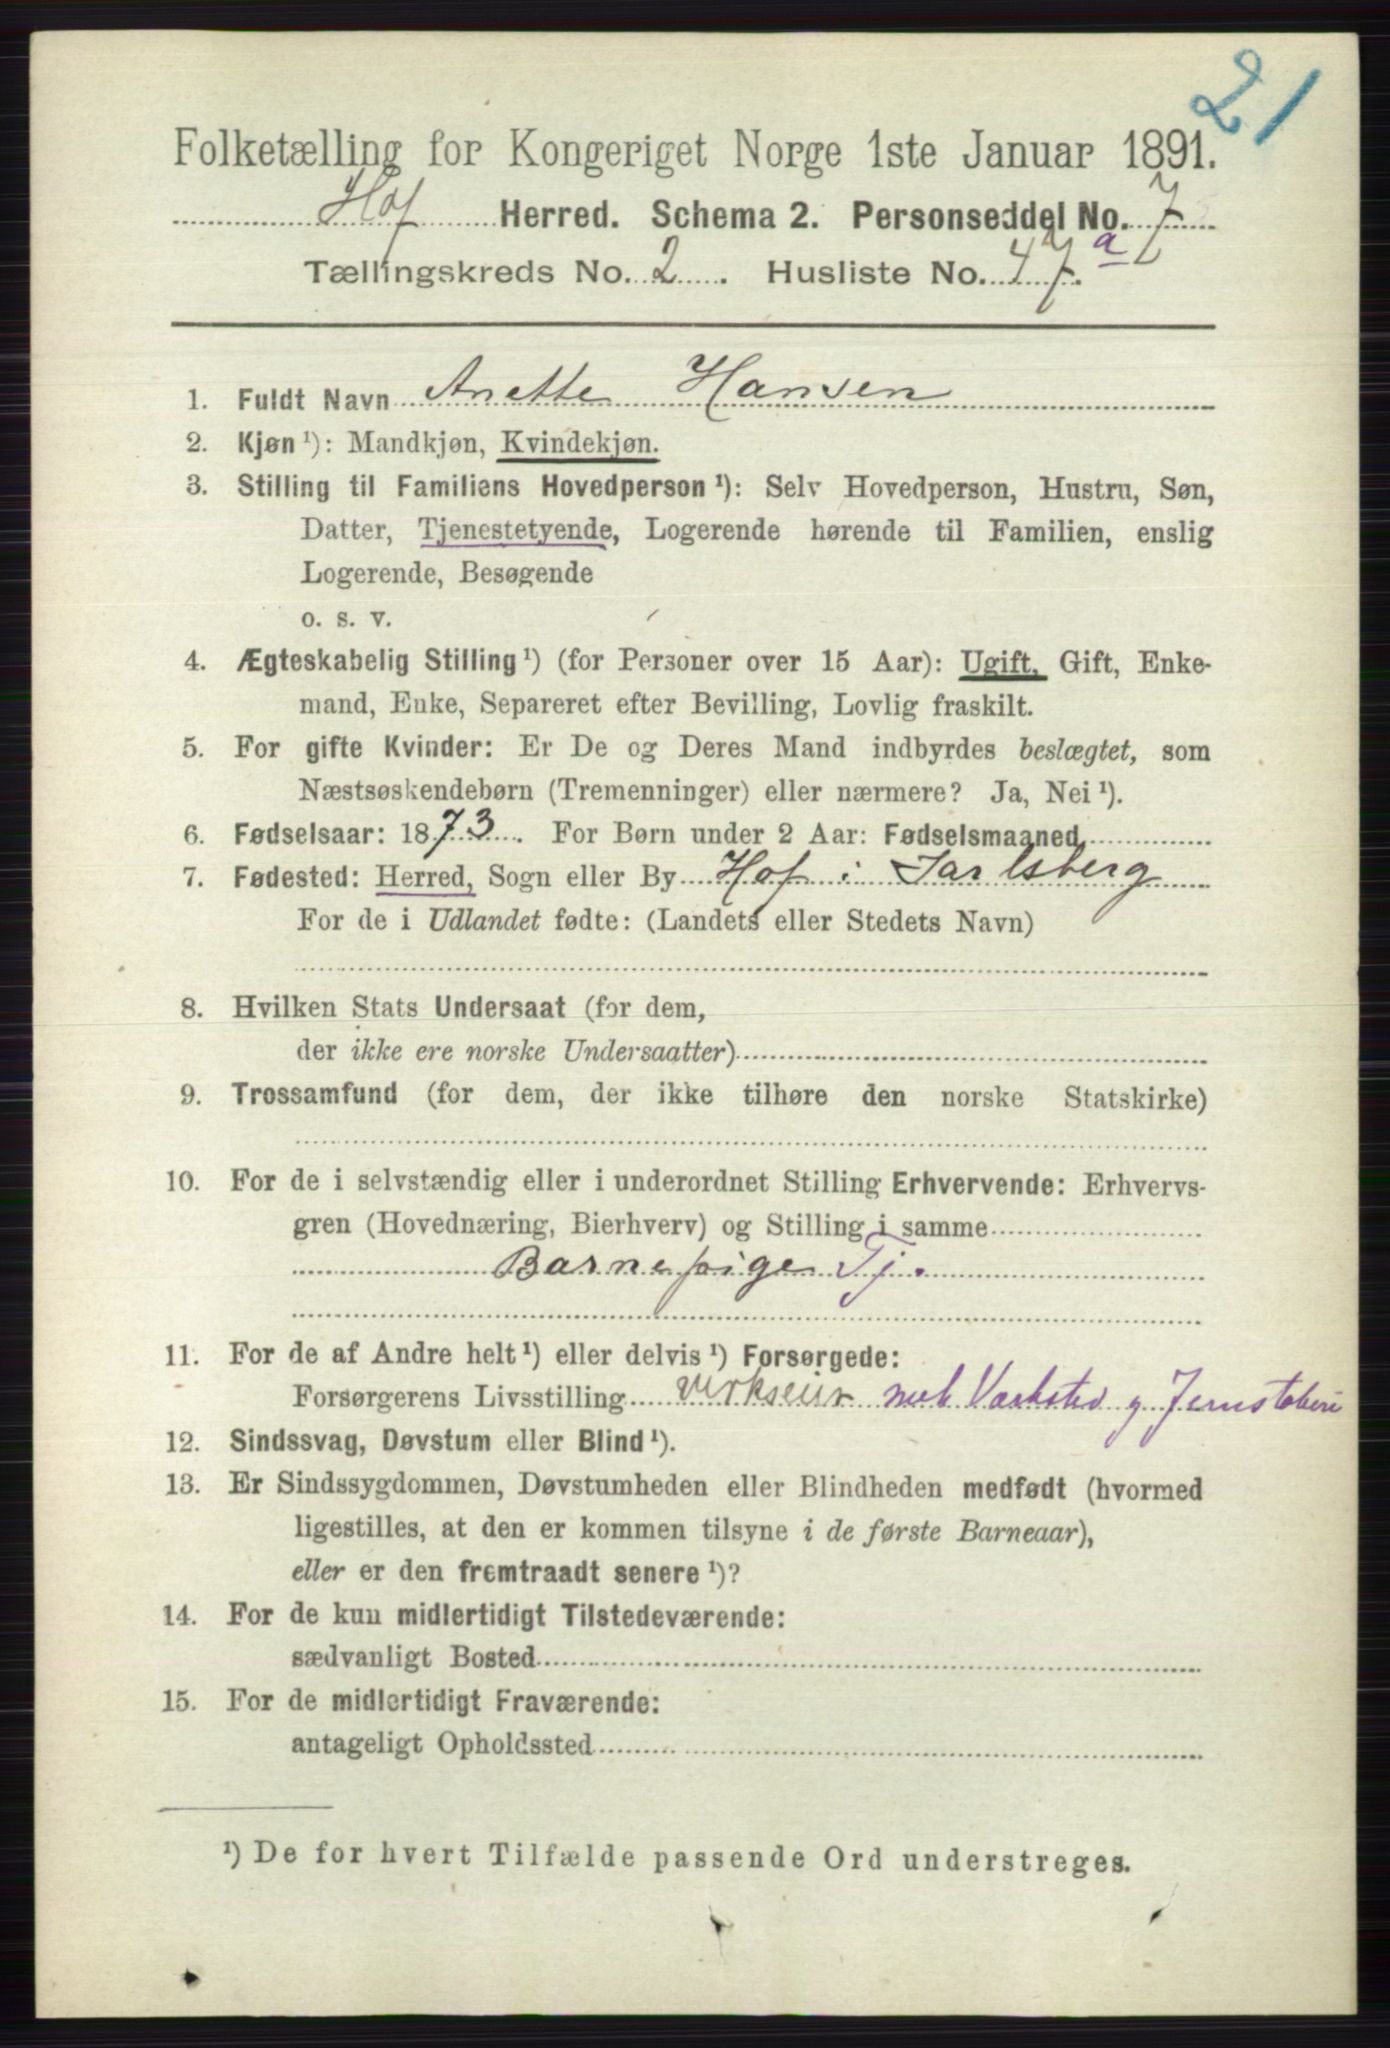 21
Folketælling for Kongeriget Norge 1ste Januar 1891.
Hof Herred. Schema 2. Personseddel No. 7
Tællingskreds No. 2. Husliste No. 47.a
1. Fuldt Navn Anette Hansen
2. Kjøn¹): Mandkjøn, Kvindekjøn.
3. Stilling til Familiens Hovedperson¹): Selv Hovedperson, Hustru, Søn,
Datter, Tjenestetyende, Logerende hørende til Familien, enslig
Logerende, Besøgende
o. s. v.
4. Ægteskabelig Stilling¹) (for Personer over 15 Aar): Ugift, Gift, Enke-
mand, Enke, Separeret efter Bevilling, Lovlig fraskilt.
5. For gifte Kvinder: Er De og Deres Mand indbyrdes beslægtet, som
Næstsøskendebørn (Tremenninger) eller nærmere? Ja, Nei¹).
6. Fødselsaar: 1873. For Børn under 2 Aar: Fødselsmaaned
7. Fødested: Herred, Sogn eller By Hof i Jarlsberg
For de i Udlandet fødte: (Landets eller Stedets Navn)
8. Hvilken Stats Undersaat (for dem,
der ikke ere norske Undersaatter)
9. Trossamfund (for dem, der ikke tilhøre den norske Statskirke)
10. For de i selvstændig eller i underordnet Stilling Erhvervende: Erhvervs-
gren (Hovednæring, Bierhverv) og Stilling i samme
Barnepige Tj.
11. For de af Andre helt¹) eller delvis¹) Forsørgede:
Forsørgerens Livsstilling
12. Sindssvag, Døvstum eller Blind¹).
13. Er Sindssygdommen, Døvstumheden eller Blindheden medfødt (hvormed
ligestilles, at den er kommen tilsyne i de første Barneaar),
eller er den fremtraadt senere¹)?
14. For de kun midlertidigt Tilstedeværende:
sædvanligt Bosted
15. For de midlertidigt Fraværende:
antageligt Opholdssted
¹) De for hvert Tilfælde passende Ord understreges.